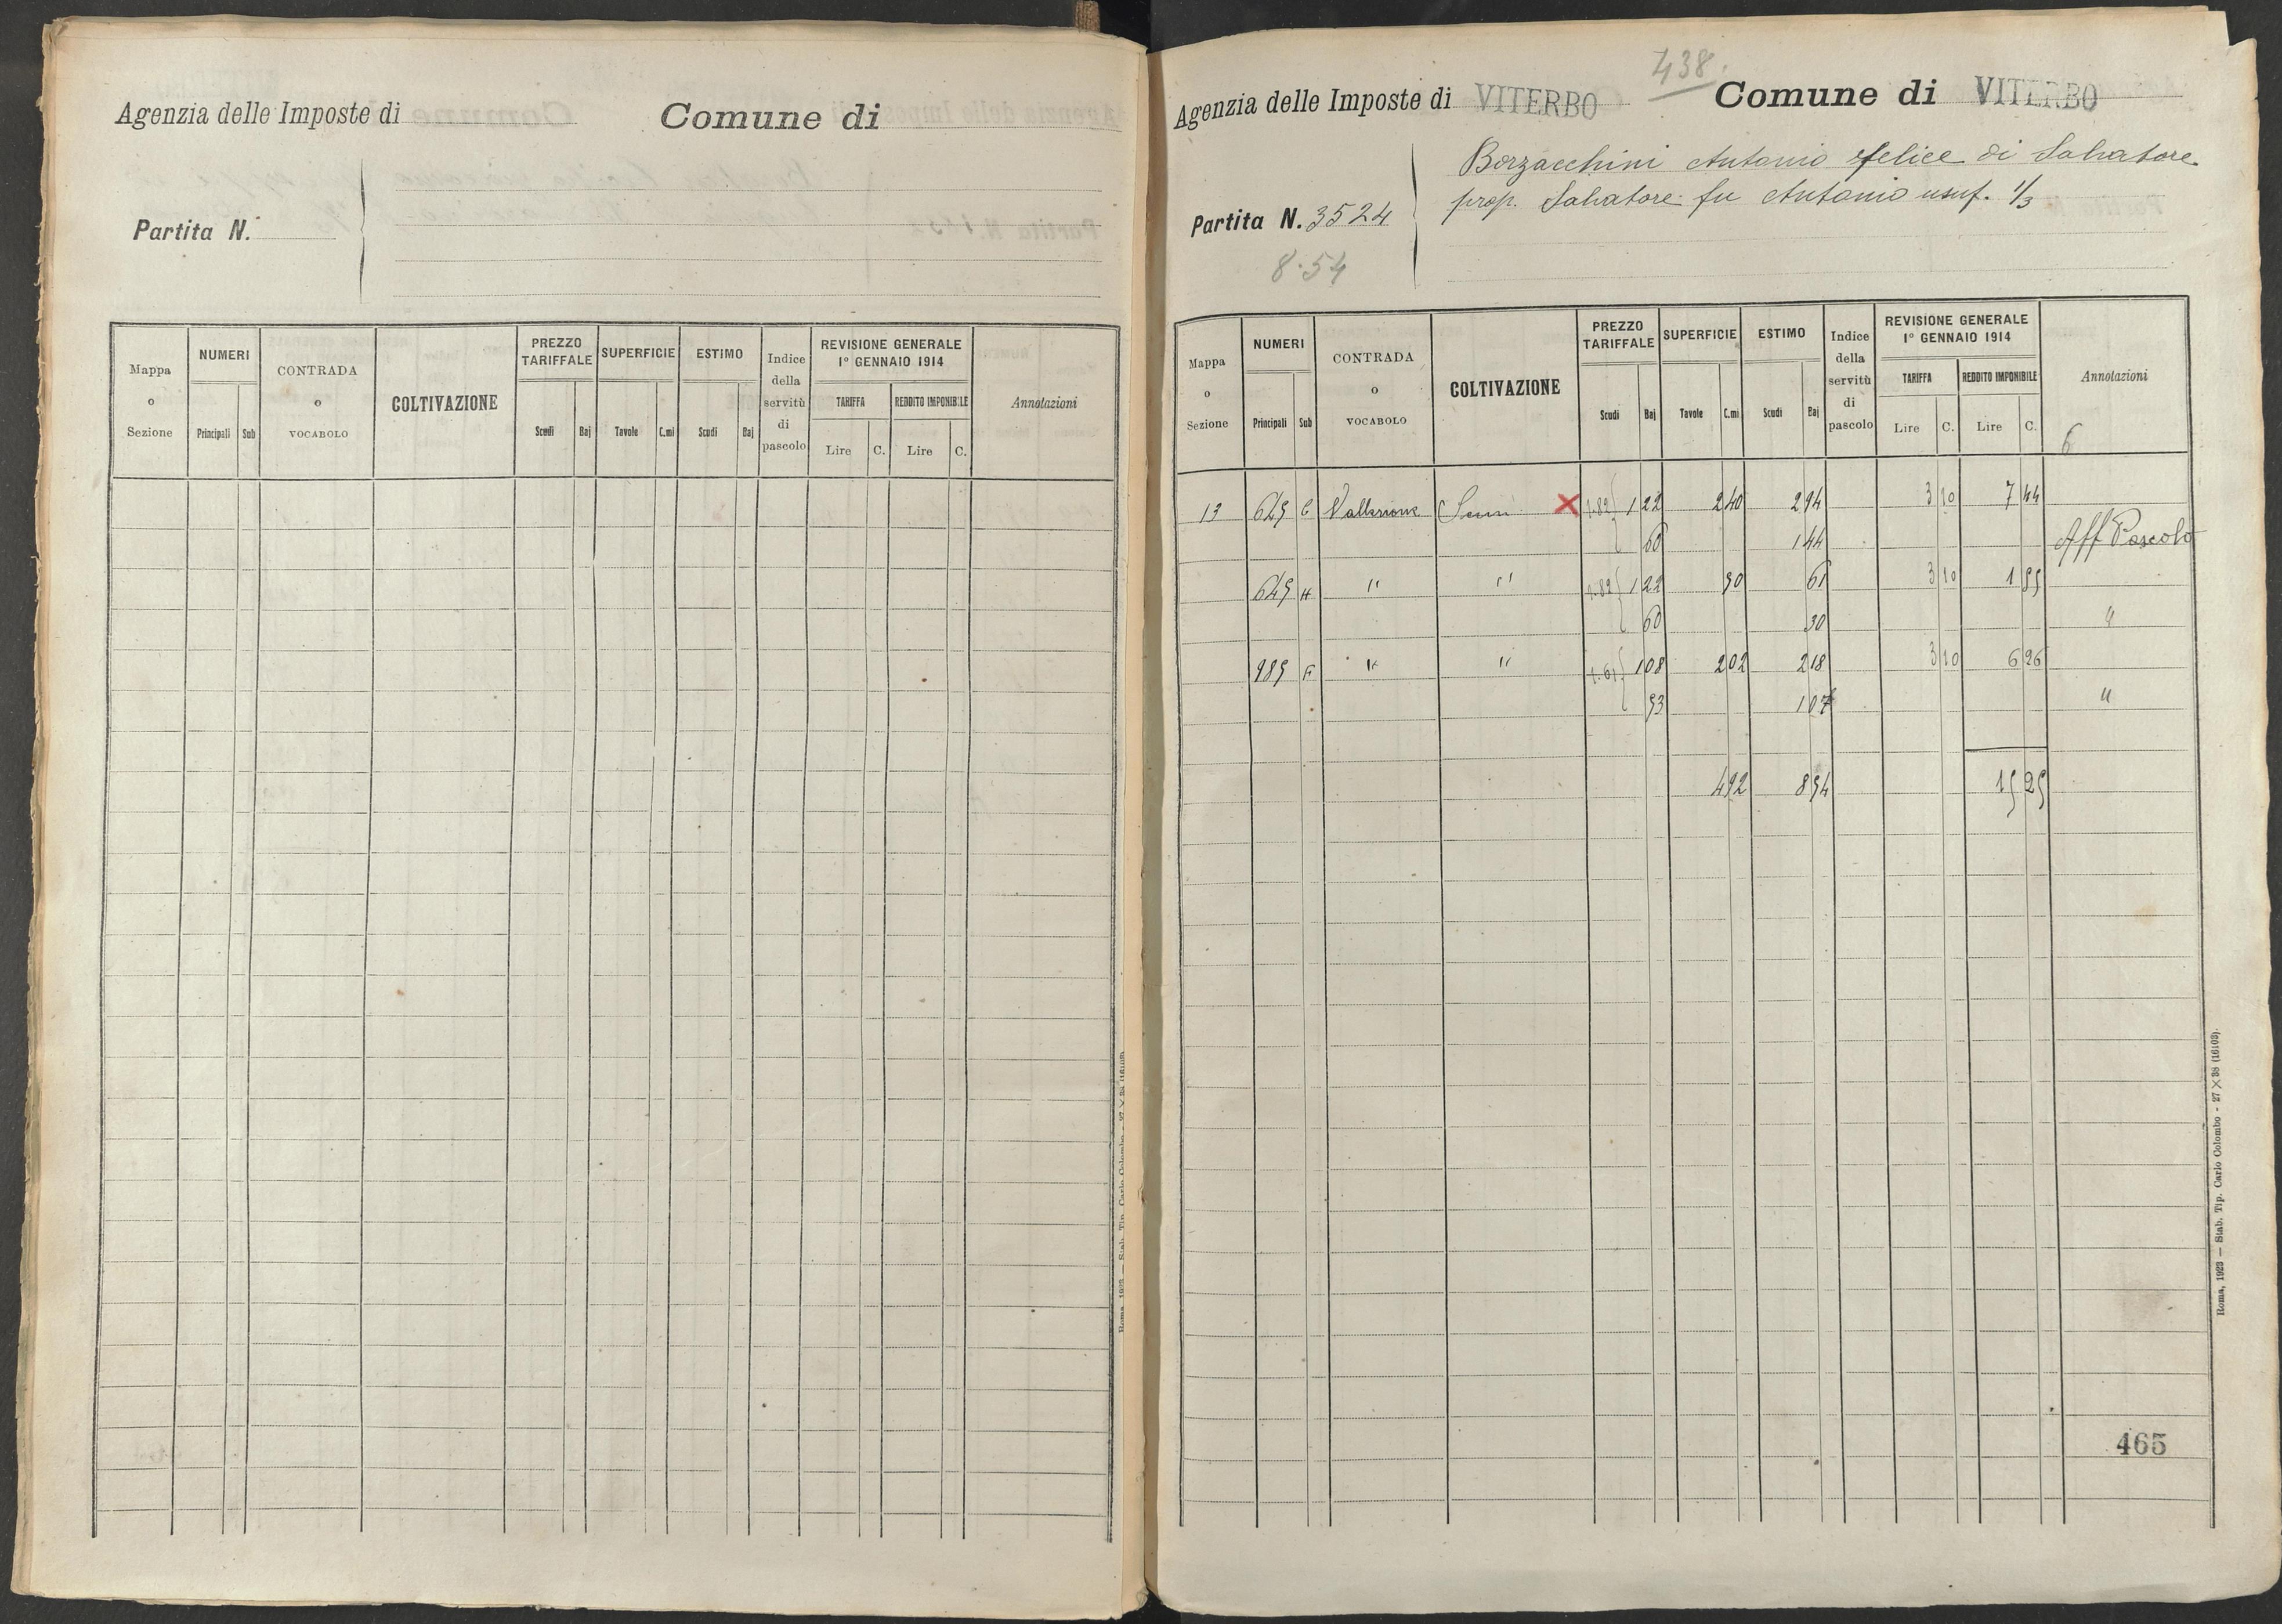 Agenzia delle Imposte di Comune di
Partita N.
Mappa o Sezione NUMERI Principali Sub CONTRADA o VOCABOLO COLTIVAZIONE PREZZO TARIFFALE Scudi Baj SUPERFICIE Tavole C.mi ESTIMO Scudi Baj Indice della servitù di pascolo REVISIONE GENERALE 1° GENNAIO 1914 TARIFFA Lire C. REDDITO IMPONIBILE Lire C. Annotazioni
438.
Agenzia delle Imposte di VITERBO Comune di VITERBO
Borzacchini Antonio Felice di Salvatore
prop. Salvatore fu Antonio usuf. 1/3
Partita N. 3524
8.54
Mappa o Sezione NUMERI Principali Sub CONTRADA o VOCABOLO COLTIVAZIONE PREZZO TARIFFALE Scudi Baj SUPERFICIE Tavole C.mi ESTIMO Scudi Baj Indice della servitù di pascolo REVISIONE GENERALE 1° GENNAIO 1914 TARIFFA Lire C. REDDITO IMPONIBILE Lire C. Annotazioni
6
13 649 1.82 1 22 2 40 2 94 3 10 7 44
60 1 44 Aff Pascolo
649 H " " 1.82 1 22 90 61 3 10 1 55
60 30 "
989 " " 1.61 1 08 2 02 2 18 3 10 6 26
53 1 07 "
4 92 8 54 15 25
465
Roma, 1923 — Stab. Tip. Carlo Colombo - 27 × 38 (16103).